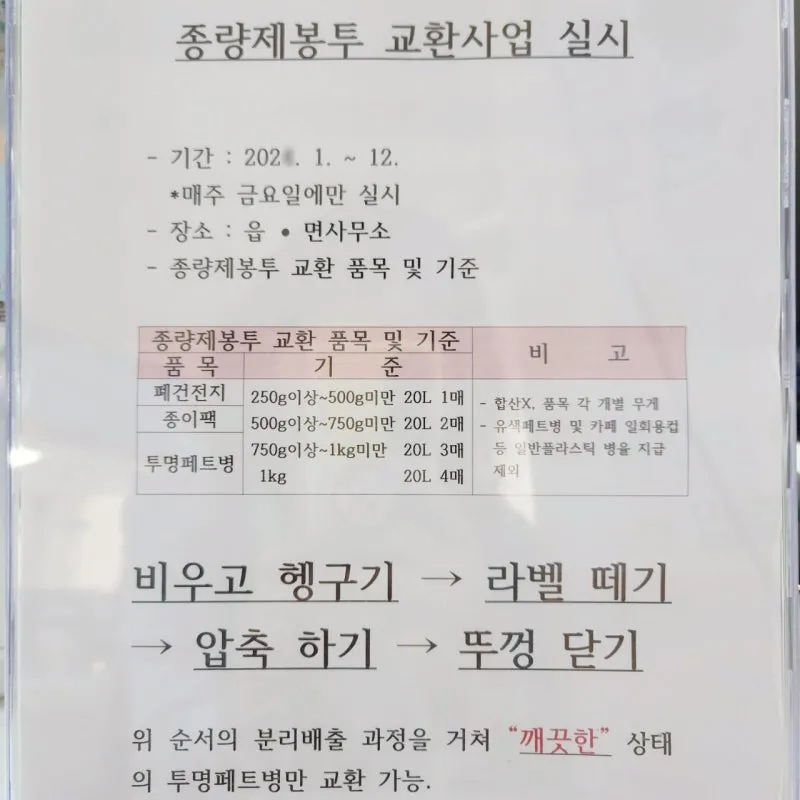 종량제봉투 교환사업 실시
- 기간 : 202 . 1. ~ 12.
*매주 금요일에만 실시
- 장소 : 읍 • 면사무소
- 종량제봉투 교환 품목 및 기준
종량제봉투 교환 품목 및 기준
비 고
품 목 기 준
폐건전지 250g이상~500g미만 20L 1매
종이팩 500g이상~750g미만 20L 2매
투명페트병 750g이상~1kg미만 20L 3매
1kg 20L 4매
- 합산X, 품목 각 개별 무게
- 유색페트병 및 카페 일회용컵
등 일반플라스틱 병율 지급
제외
비우고 헹구기 → 라벨 떼기
→ 압축 하기 → 뚜껑 닫기
위 순서의 분리배출 과정을 거쳐 “깨끗한” 상태
의 투명페트병만 교환 가능.